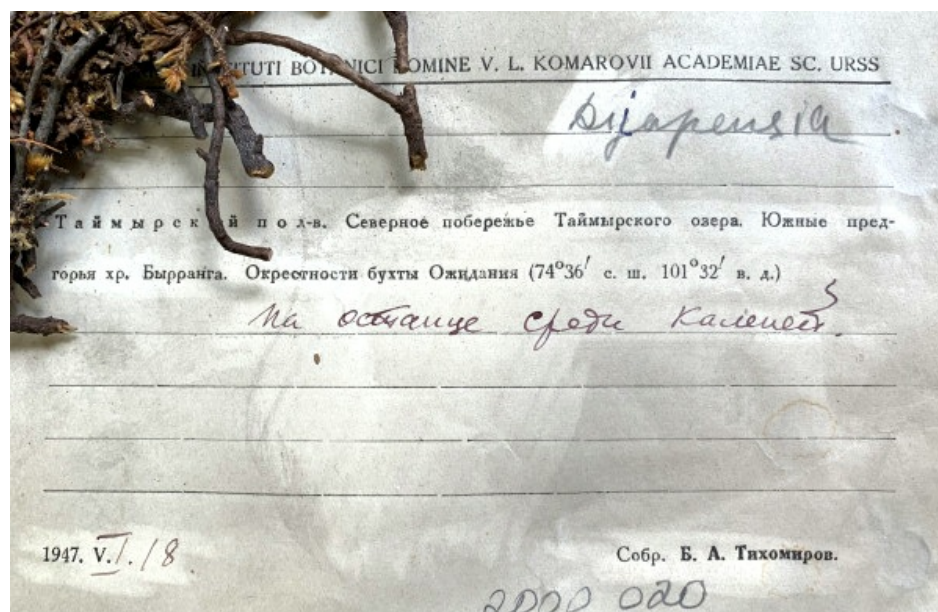 INSTITUTI BOTANICI NOMINE V. L. KOMAROVII ACADEMIAE SC. URSS
Dijapensia
Таймырский пол-в. Северное побережье Таймырского озера. Южные пред-
горья хр. Бырранга. Окрестности бухты Ожидания (74°36′ с. ш. 101°32′ в. д.)
На останце среди камней
1947. VI. 18
Собр. Б. А. Тихомиров.
2000 020